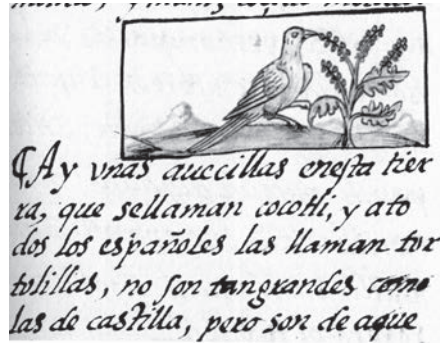 ¶Ay vnas auecillas enesta tier
ra, que sellaman cocotli, y ato
dos los españoles las llaman tor
tolillas, no son tangrandes como
las de castilla, pero son de aque